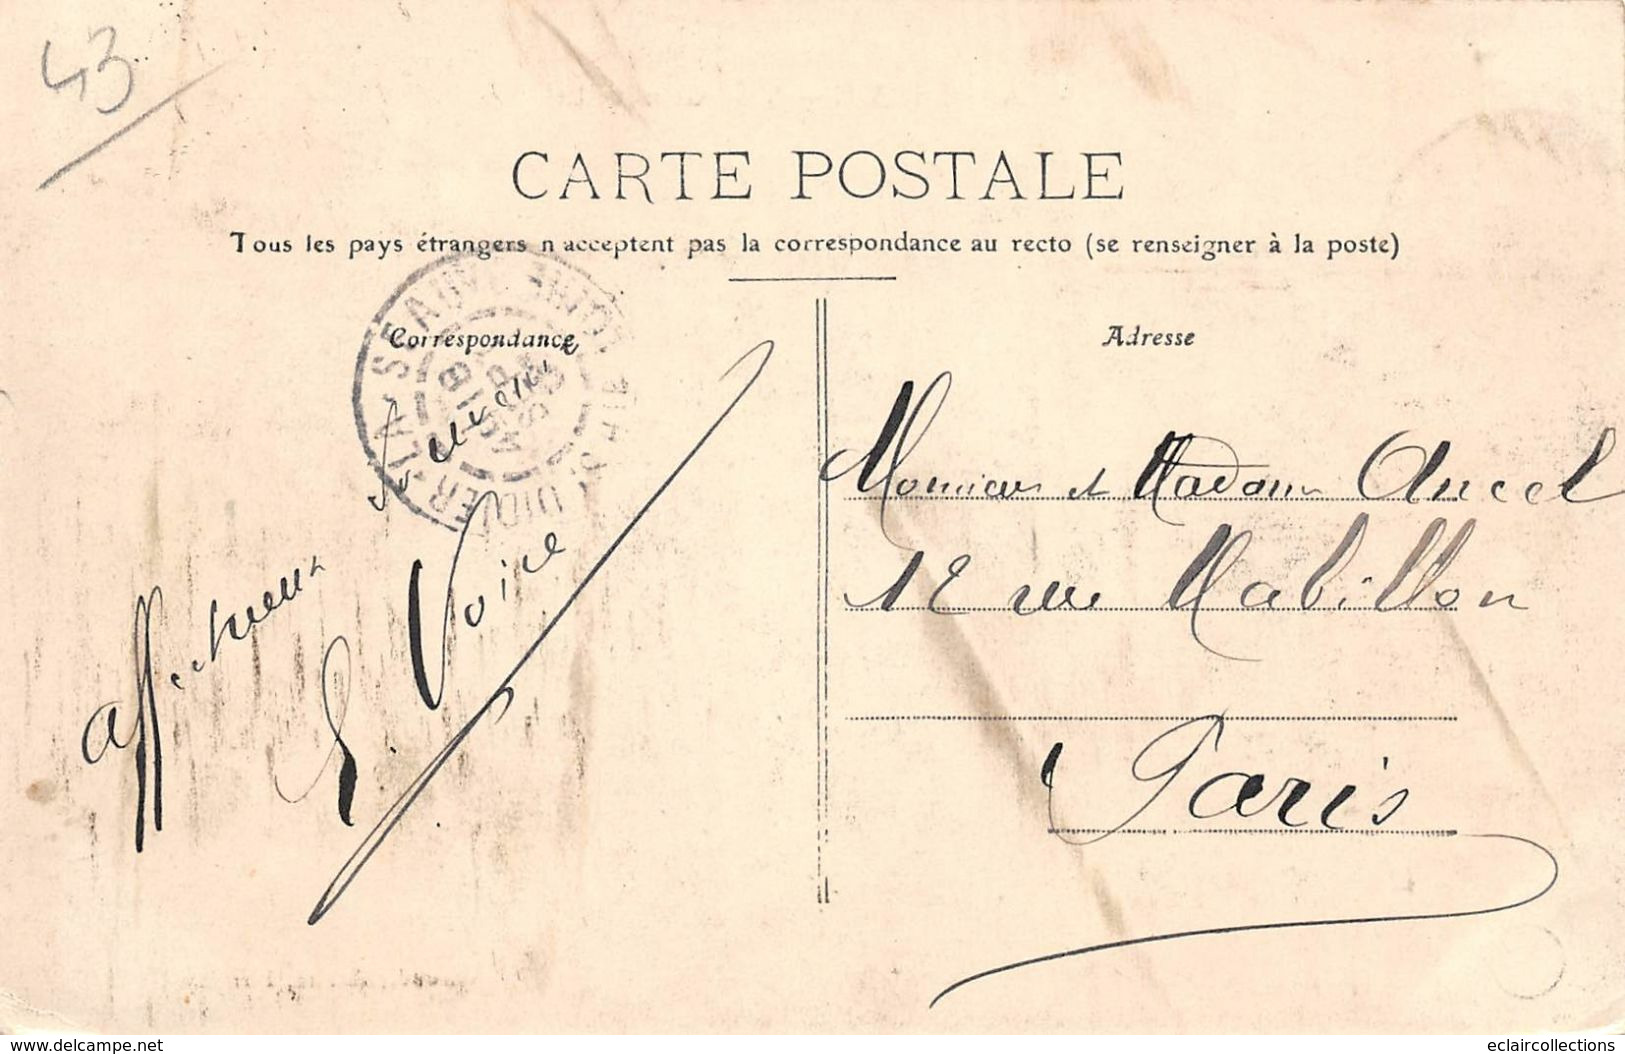 43
CARTE POSTALE
Tous les pays étrangers n'acceptent pas la correspondance au recto (se renseigner à la poste)
Correspondance
Adresse
LA SEAUVE
Affectueux
E. Voire
Monsieur et Madame Ancel
12 rue Mabillon
Paris
www.delcampe.net
eclaircollections